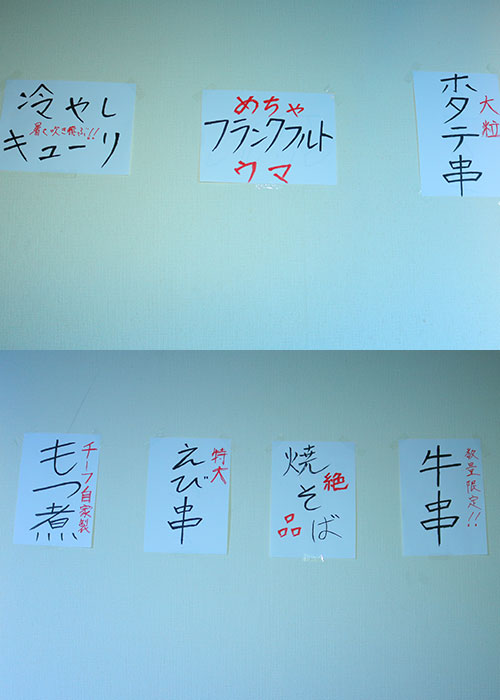 冷やし
暑く吹き飛ぶ!!
キューリ
めちゃ
フランクフルト
ウマ
ホタテ串
大粒
もつ煮
チーフ自家製
えび串
特大
焼そば
絶品
牛串
数量限定!!